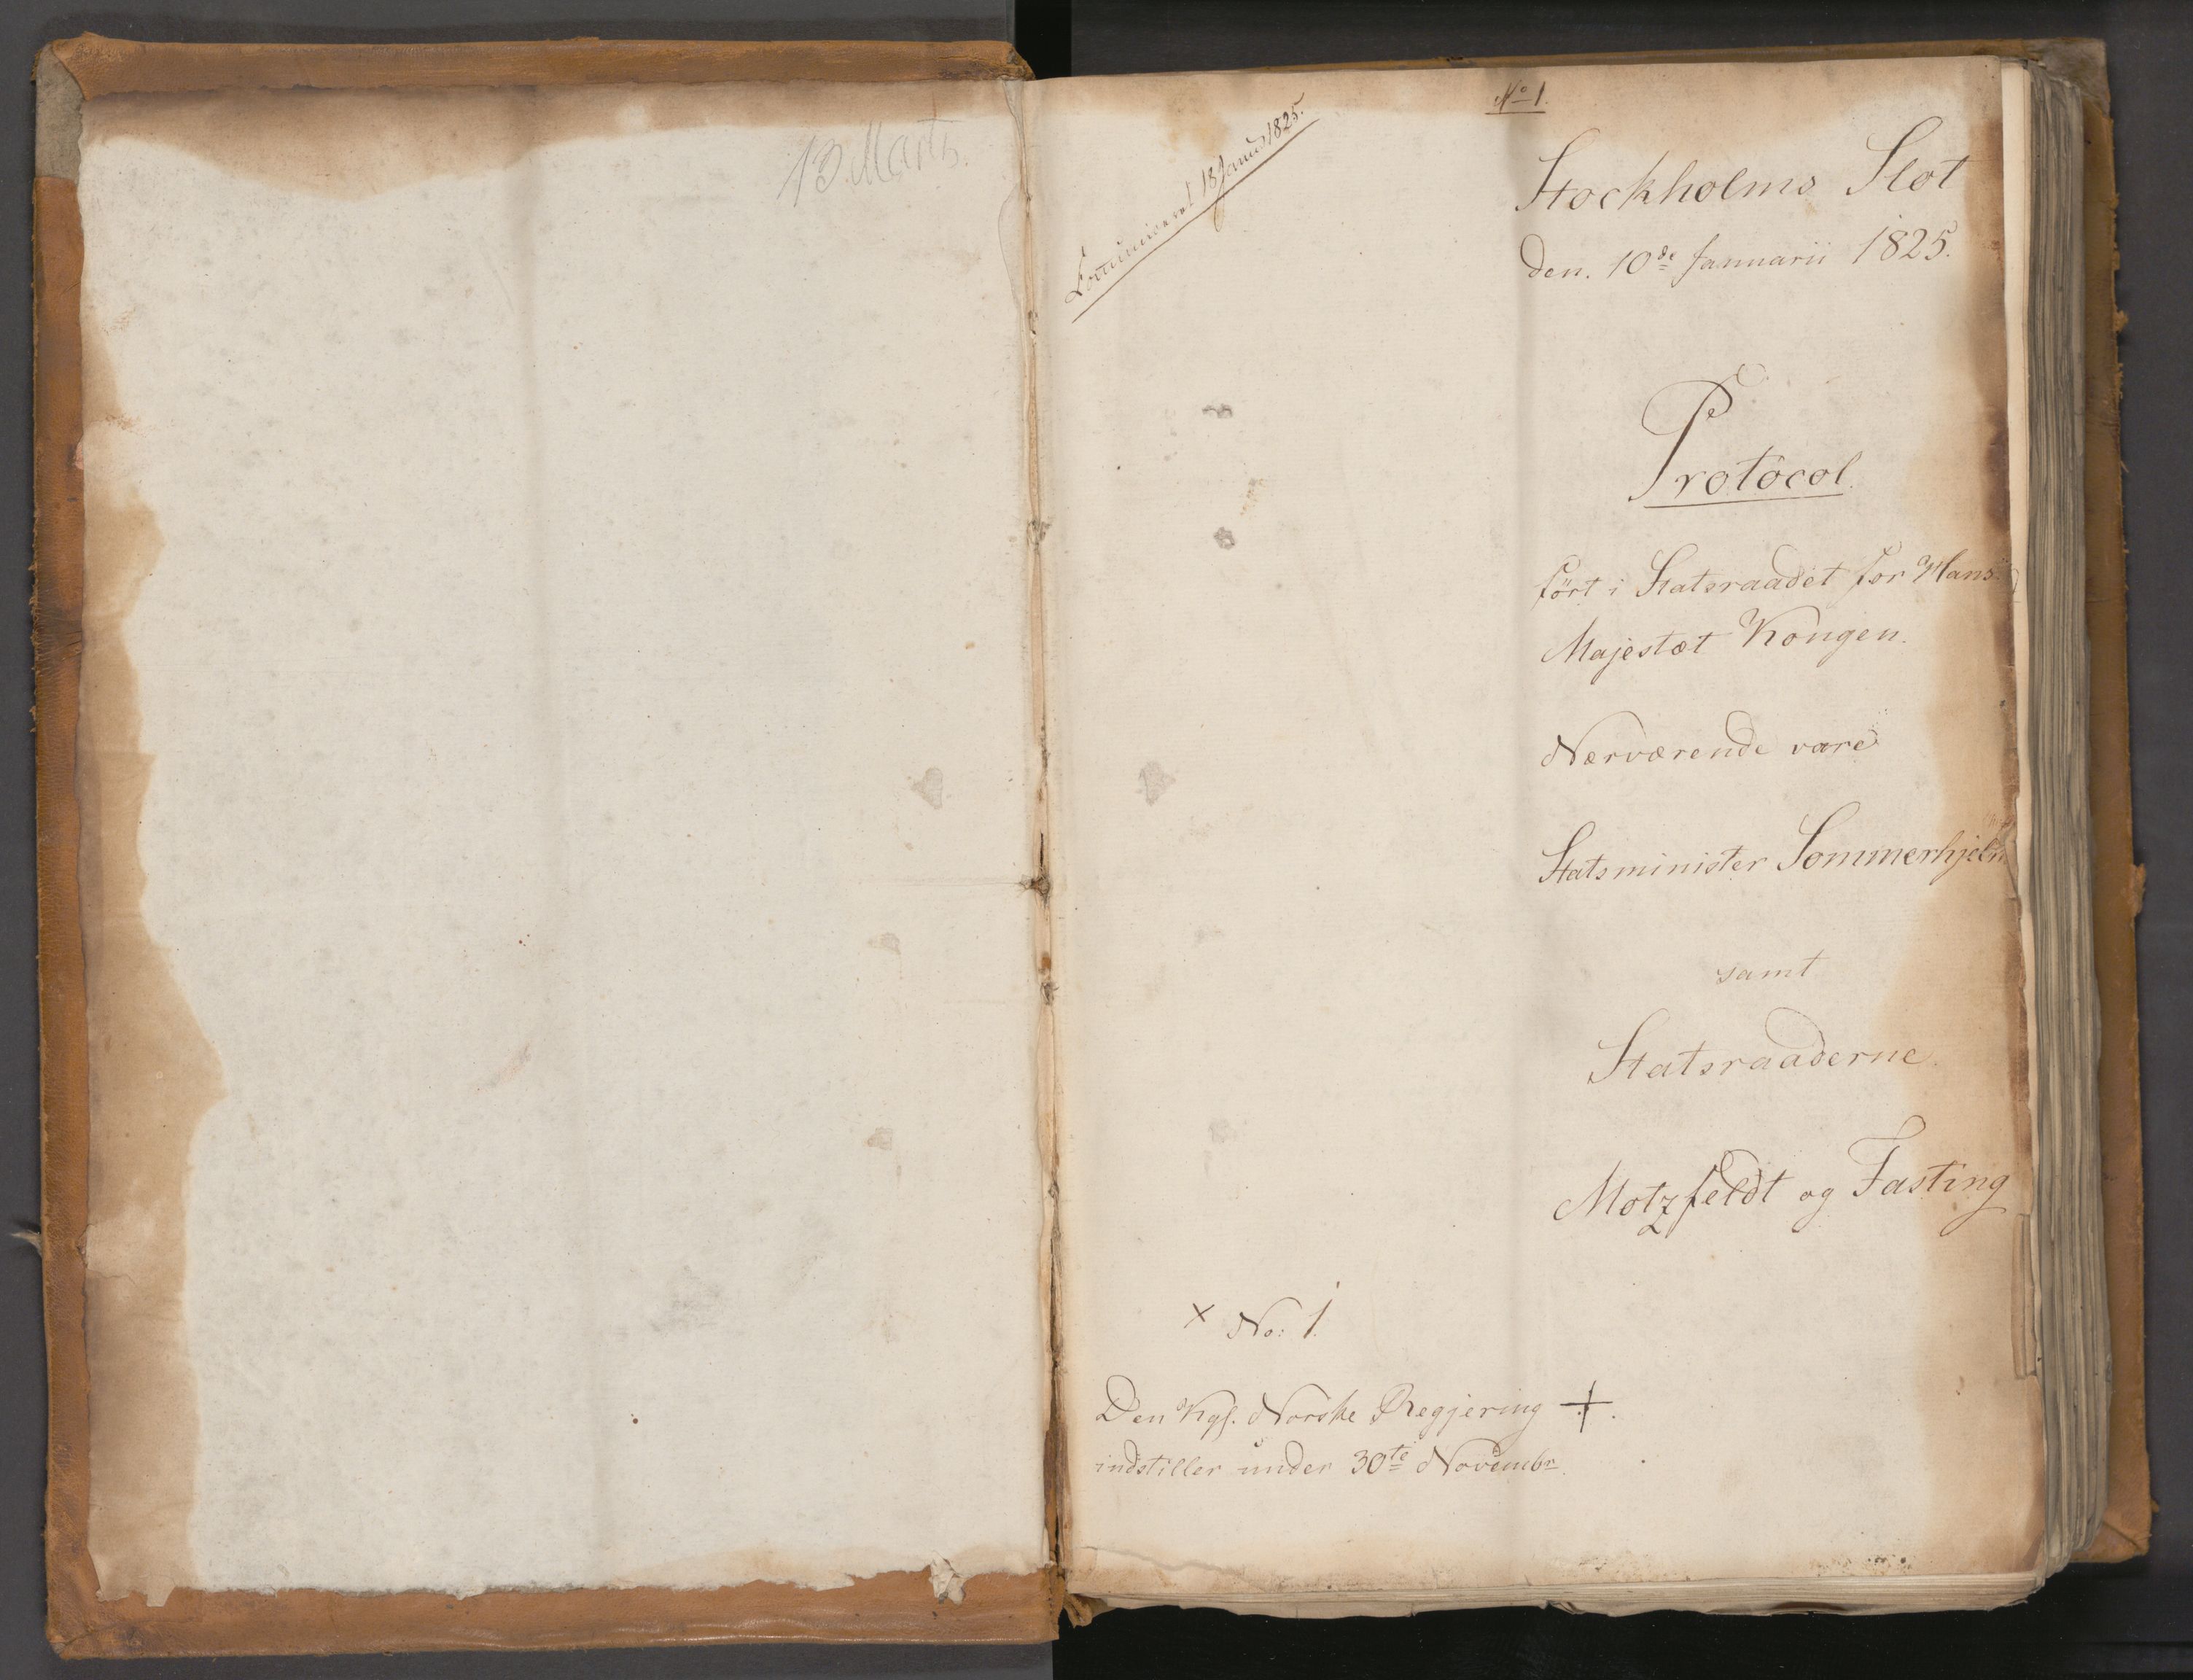 13 Marts.
No 1.
Communiceret 18 Januar 1825.
Stockholms Slot
den. 10de Januarii 1825.
Protocol.
fört i Statsraadet for Hans
Majestæt Kongen.
Nærværende vare
Statsminister Sommerhjelm
samt
Statsraaderne
Motzfeldt og Fasting
x No: 1.
Den Kgl. Norske Regjering +.
indstiller under 30te Novembr.